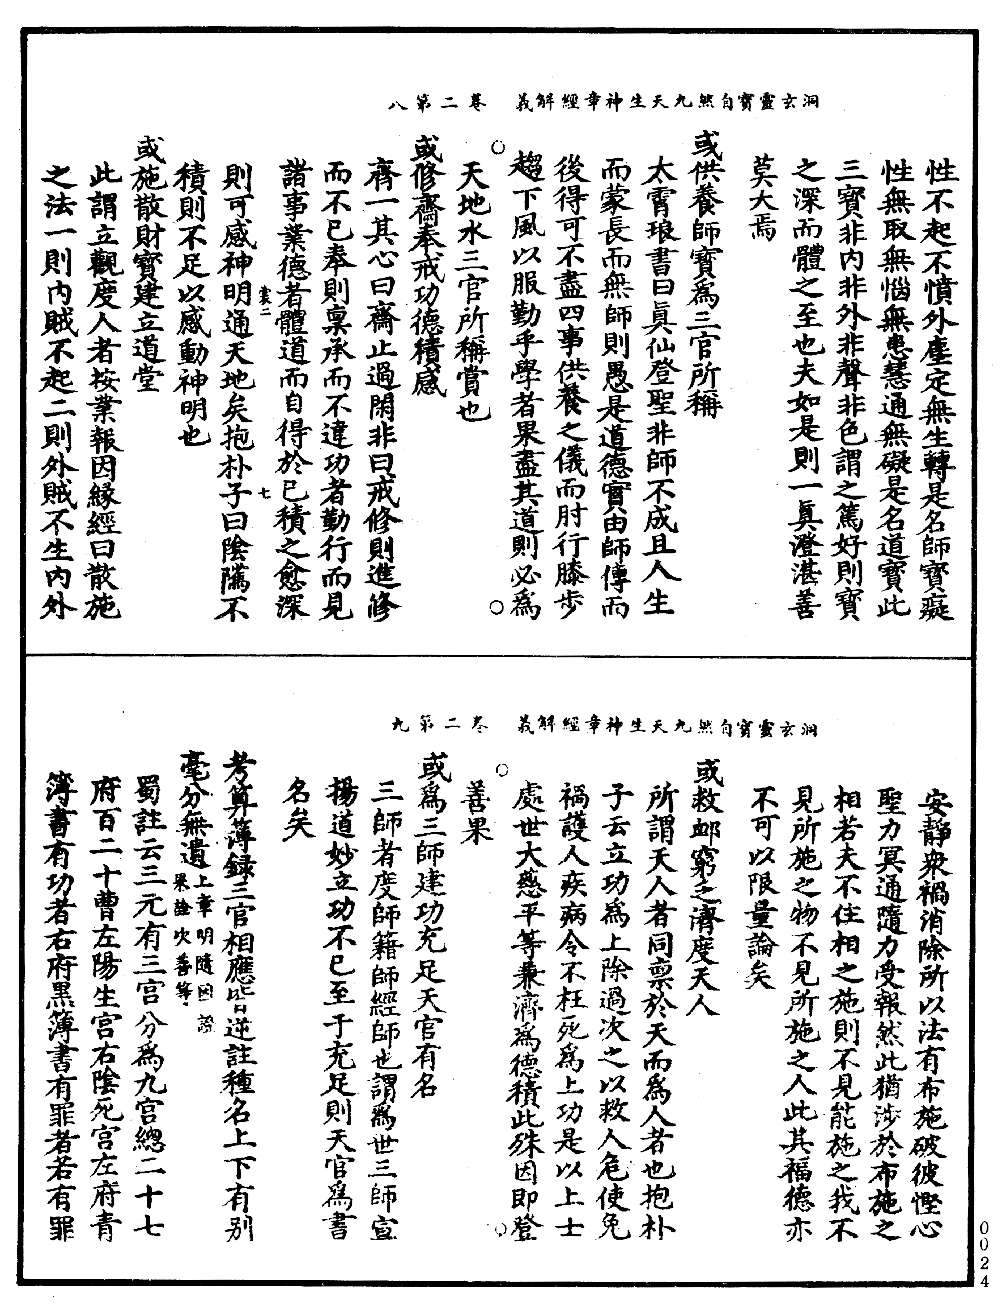 洞玄靈寶自然九天生神章經解義　卷二第八
性不起不憤外塵定無生轉是名師寶癡
性無取無惱無患慧通無礙是名道寶此
三寶非內非外非聲非色謂之篤好則寶
之深而體之至也夫如是則一真澄湛善
莫大焉
或供養師寶為三官所稱
太霄琅書曰真仙登聖非師不成且人生
而蒙長而無師則愚是道德實由師傳而
後得可不盡四事供養之儀而肘行膝步
趨下風以服勤乎學者果盡其道則必為
天地水三官所稱賞也
或修齋奉戒功德積感
齊一其心曰齋止過閑非曰戒修則進修
而不已奉則稟承而不違功者勤行而見
諸事業德者體道而自得於已積之愈深
裳二　七
則可感神明通天地矣抱朴子曰陰隲不
積則不足以感動神明也
或施散財寶建立道堂
此謂立觀度人者按業報因緣經曰散施
之法一則內賊不起二則外賊不生內外
洞玄靈寶自然九天生神章經解義　卷二第九
安靜衆禍消除所以法有布施破彼慳心
聖力冥通隨力受報然此猶涉於布施之
相若夫不住相之施則不見能施之我不
見所施之物不見所施之人此其福德亦
不可以限量論矣
或救卹窮乏濟度天人
所謂天人者同禀於天而為人者也抱朴
子云立功為上除過次之以救人危使免
禍護人疾病令不枉死為上功是以上士
處世大慈平等兼濟為德積此殊因即登
善果
或為三師建功充足天官有名
三師者度師籍師經師也謂為世三師宣
揚道妙立功不已至于充足則天官為書
名矣
考算簿録三官相應皆逆註種名上下有別
毫分無遺上章明隨因證果論次善等
蜀註云三元有三官分為九宮總二十七
府百二十曹左陽生宮右陰死宮左府青
簿書有功者右府黑簿書有罪者若有罪
0024